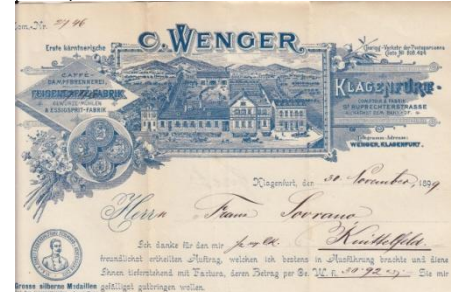 Com.-Nr. 2746
Erste kärntnerische
C. WENGER,
CAFFÉ-
DAMPFBRENNEREI,
FEIGENCAFFÉ-FABRIK
GEWÜRZ-MÜHLEN
& ESSIGSPRIT-FABRIK
KLAGENFURT
COMPTOIR & FABRIK
ST. RUPRECHTERSTRASSE
ZUNÄCHST DEM BAHNHOF.
Telegramm-Adresse:
WENGER, KLAGENFURT.
Klagenfurt, den 30 November, 1899
Herrn Franz Sovrano
Knittelfeld.
Ich danke für den mir
freundlichst ertheilten Auftrag, welchen ich bestens in Ausführung brachte und diene
Ihnen tieferstehend mit Factura, deren Betrag per Oe. W. f. 30.92 Sie mir
Grosse silberne Medaillen gefälligst gutbringen wollen.